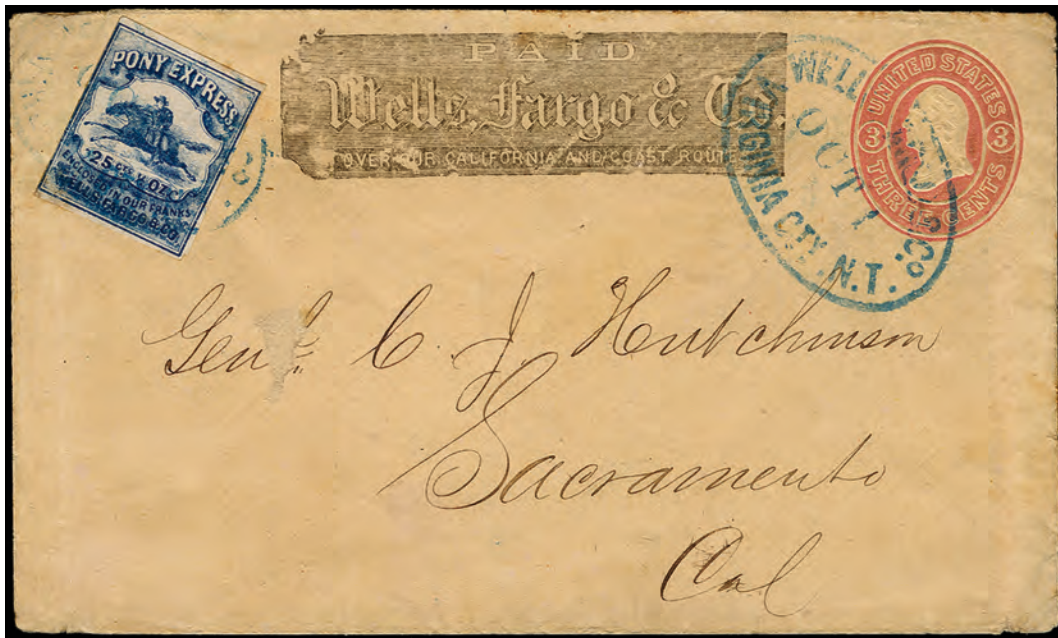 PONY EXPRESS.
25 CTS. ½ OZ.
ENCLOSED IN OUR FRANKS
WELLS, FARGO & CO.
PAID
Wells, Fargo & Co.
OVER OUR CALIFORNIA AND COAST ROUTES
WELLS
OCT 1
VIRGINIA CTY. N.T.
Co
UNITED STATES
3 3
THREE CENTS
Genl. C. J. Hutchinson
Sacramento
Cal